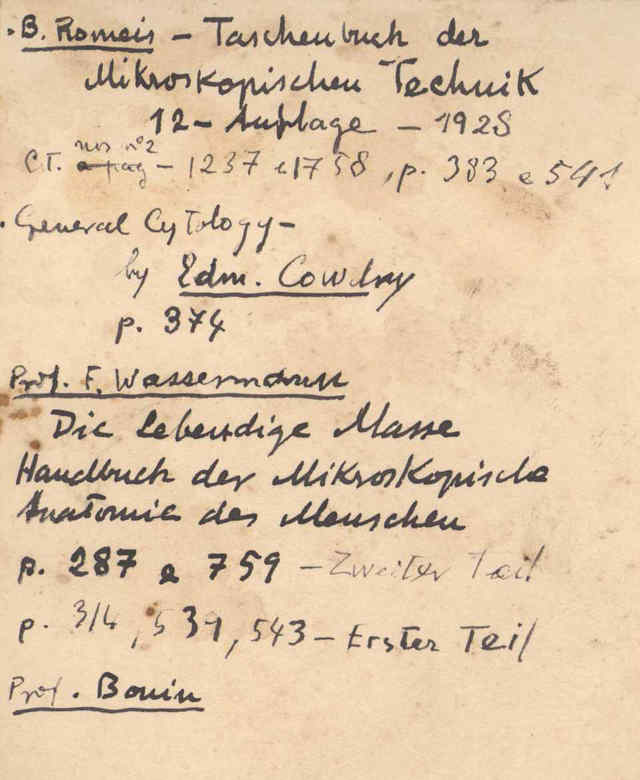 · B. Romeis – Taschenbuch der
Mikroskopischen Technik
12 – Auflage – 1928
nos nº2
C.T. – 1237 e 1758, p. 383 e 541
· General Cytology –
by Edm. Cowdry
p. 374
Prof. F. Wassermann
Die lebendige Masse
Handbuch der Mikroskopische
Anatomie des Menschen
p. 287 e 759 – Zweiter Teil
p. 314, 539, 543 – Erster Teil
Prof. Bouin